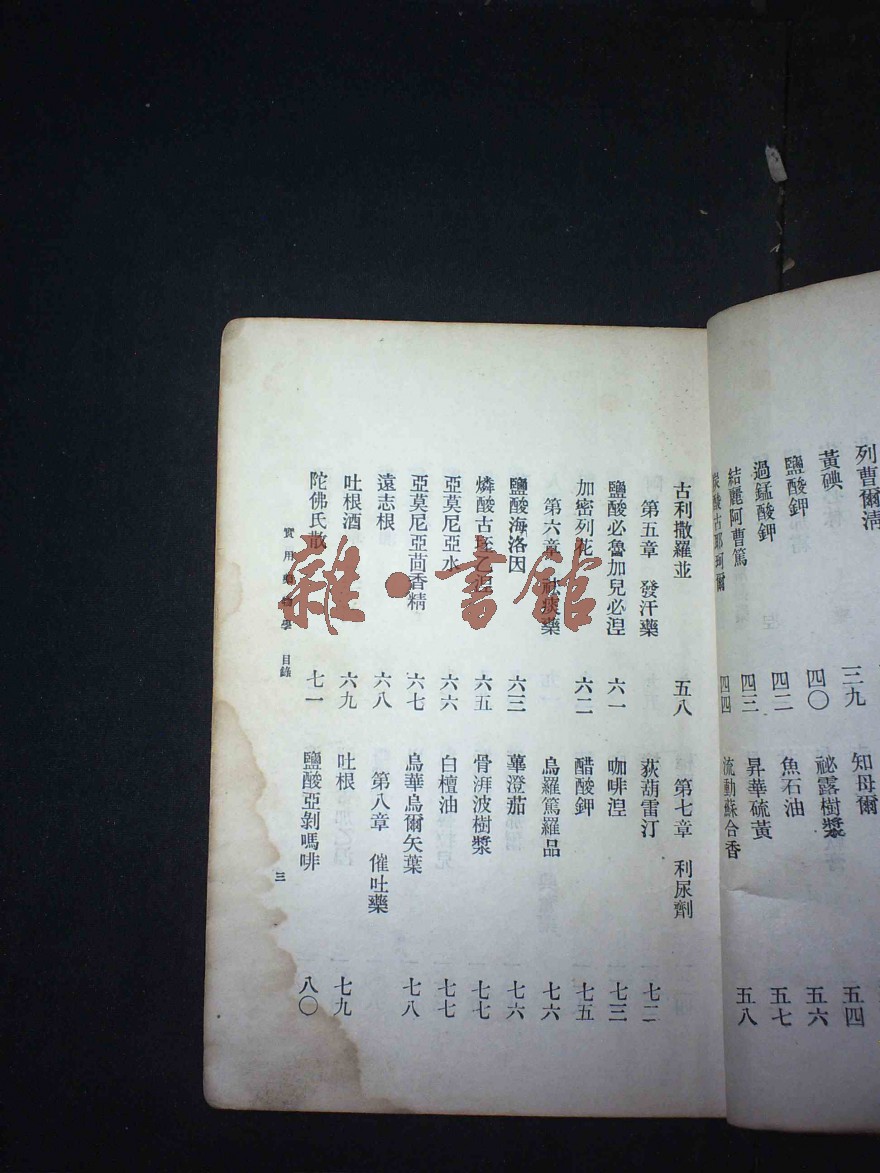 列曹爾清 三九
黃碘 四〇
鹽酸鉀 四二
過錳酸鉀 四三
結麗阿曹篤 四四
炭酸古耶珂爾
知母爾 五四
祕露樹漿 五六
魚石油 五七
昇華硫黃 五八
流動蘇合香
古利撒羅並 五八
第五章 發汗藥
鹽酸必魯加兒必涅 六一
加密列花 六二
第六章 祛痰藥
鹽酸海洛因 六三
燐酸古垤乙涅 六五
亞莫尼亞水 六六
亞莫尼亞茴香精 六七
遠志根 六八
吐根酒 六九
陀佛氏散 七一
第七章 利尿劑
荻葫雷汀 七二
咖啡涅 七三
醋酸鉀 七五
烏羅篤羅品 七六
蓽澄茄 七六
骨湃波樹漿 七七
白檀油 七七
烏華烏爾矢葉 七八
第八章 催吐藥
吐根 七九
鹽酸亞剝嗎啡 八〇
實用藥物學 目錄
三
雜·書館